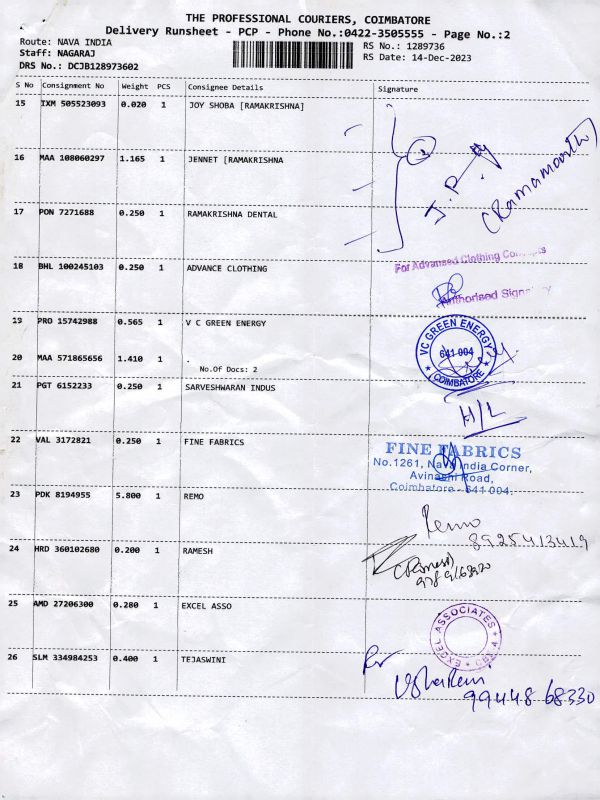 THE PROFESSIONAL COURIERS, COIMBATORE
Delivery Runsheet - PCP - Phone No.:0422-3505555 - Page No.:2
Route: NAVA INDIA RS No.: 1289736
Staff: NAGARAJ RS Date: 14-Dec-2023
DRS No.: DCJB128973602
S No Consignment No Weight PCS Consignee Details Signature
15 IXM 505523093 0.020 1 JOY SHOBA [RAMAKRISHNA]
16 MAA 108060297 1.165 1 JENNET [RAMAKRISHNA
J.P.
(Ramamoorthy)
17 PON 7271688 0.250 1 RAMAKRISHNA DENTAL
For Advansed Clothing Concepts
18 BHL 100245103 0.250 1 ADVANCE CLOTHING
Authorised Signatory
19 PRO 15742988 0.565 1 V C GREEN ENERGY
VC GREEN ENERGY
641 004
COIMBATORE
20 MAA 571865656 1.410 1 .
No.Of Docs: 2
21 PGT 6152233 0.250 1 SARVESHWARAN INDUS
H/L
22 VAL 3172821 0.250 1 FINE FABRICS
FINE FABRICS
No.1261, Nava India Corner,
Avinashi Road,
Coimbatore - 641 004.
23 PDK 8194955 5.800 1 REMO
Remo
8925413419
24 HRD 360102680 0.200 1 RAMESH
(Ramesh)
25 AMD 27206300 0.280 1 EXCEL ASSO
EXCEL ASSOCIATES
CBE
26 SLM 334984253 0.400 1 TEJASWINI
99448 68330